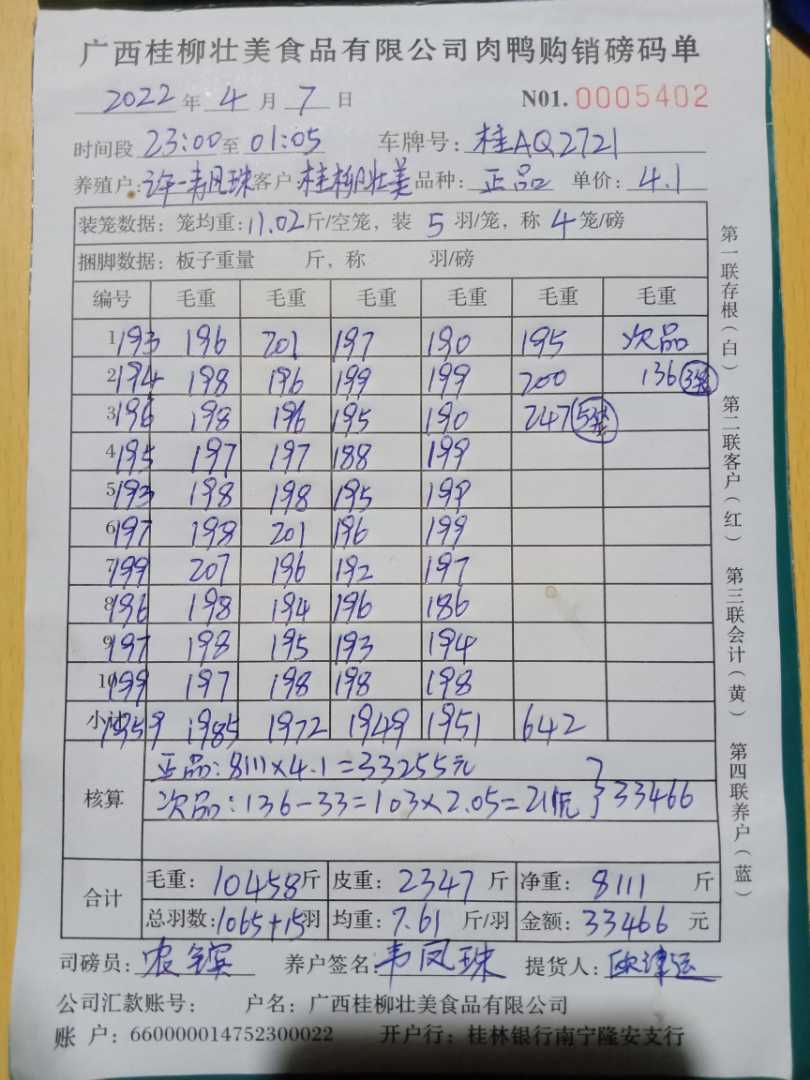 广西桂柳壮美食品有限公司肉鸭购销磅码单
2022年4月7日 N01.0005402
时间段 23:00至01:05 车牌号:桂AQ2721
养殖户:许一韦凤珠 客户:桂柳壮美 品种:正品 单价:4.1
装笼数据:笼均重:11.02斤/空笼,装 5 羽/笼,称 4 笼/磅
捆脚数据:板子重量 斤,称 羽/磅
编号 毛重 毛重 毛重 毛重 毛重 毛重
1 193 196 201 197 190 195 次品
2 194 198 196 199 199 200 136
3 196 198 196 195 190 247
4 195 197 197 188 199
5 193 198 198 195 199
6 197 198 201 196 199
7 199 207 196 192 197
8 196 198 194 196 186
9 197 198 195 193 194
10 199 197 198 198 198
小计 1959 1985 1972 1949 1951 642
核算
正品:8111×4.1=33255元
次品:136-33=103×2.05=211元 } 33466
合计
毛重:10458斤 皮重:2347斤 净重:8111斤
总羽数:1065+15羽 均重:7.61斤/羽 金额:33466元
司磅员: 养户签名:韦凤珠 提货人:
公司汇款账号: 户名:广西桂柳壮美食品有限公司
账 户:660000014752300022 开户行:桂林银行南宁隆安支行
第一联存根(白) 第二联客户(红) 第三联会计(黄) 第四联养户(蓝)